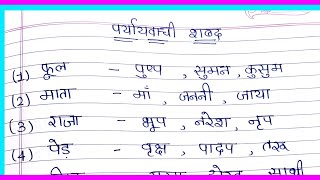 पर्यायवाची शब्द
(1) फूल - पुष्प , सुमन , कुसुम
(2) माता - माँ , जननी , जाया
(3) राजा - भूप , नरेश , नृप
(4) पेड़ - वृक्ष , पादप , तरू